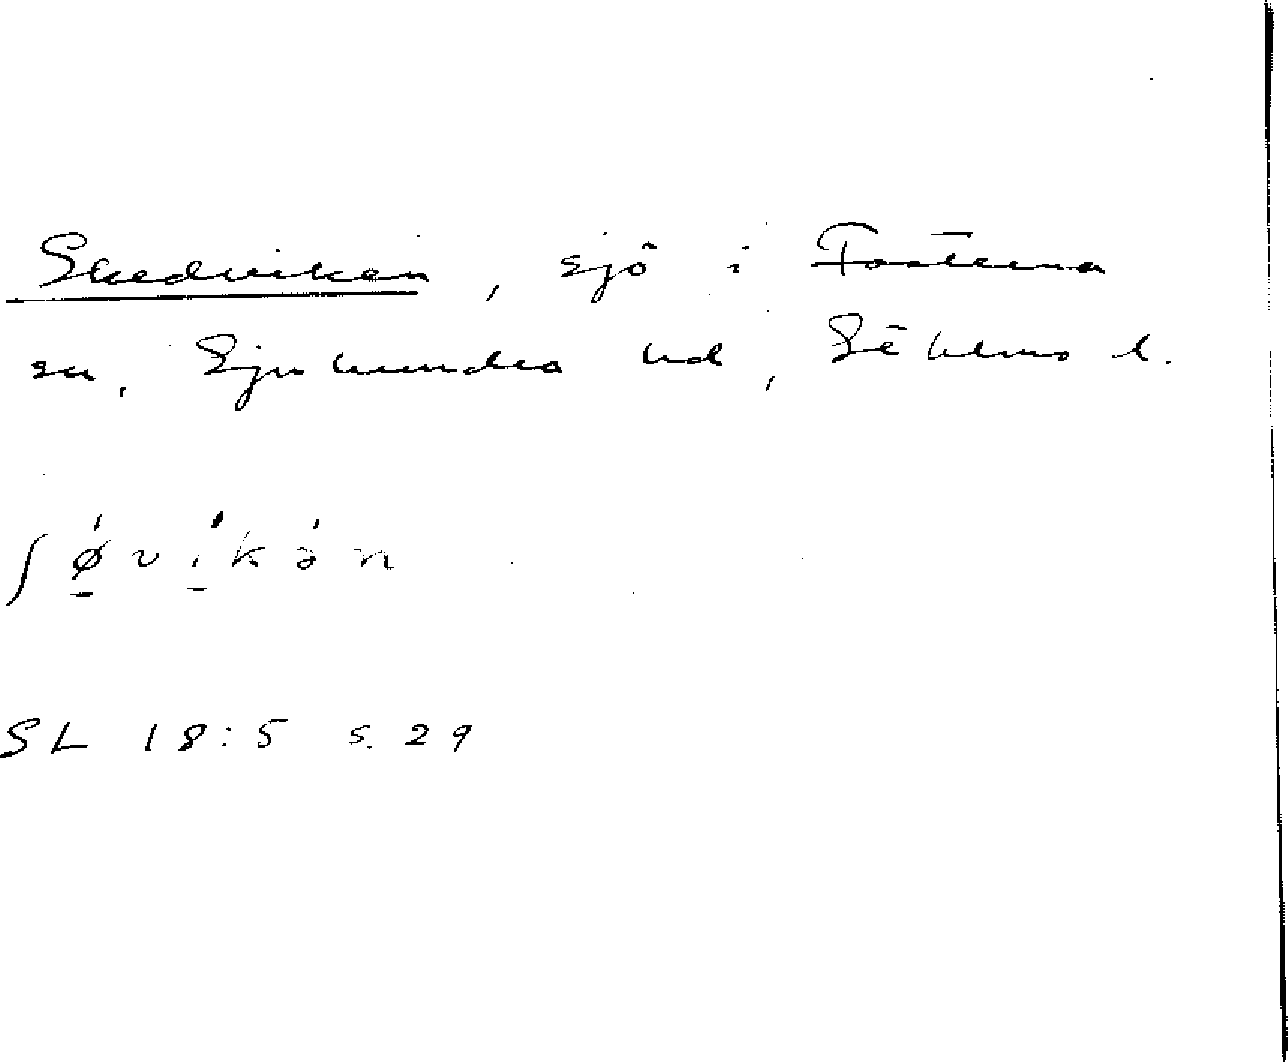 Skedviken, sjö i Fasterna
sn, Sjuhundra hd, Sthlms l.
ʃøvikən
SL 18:5 s. 29